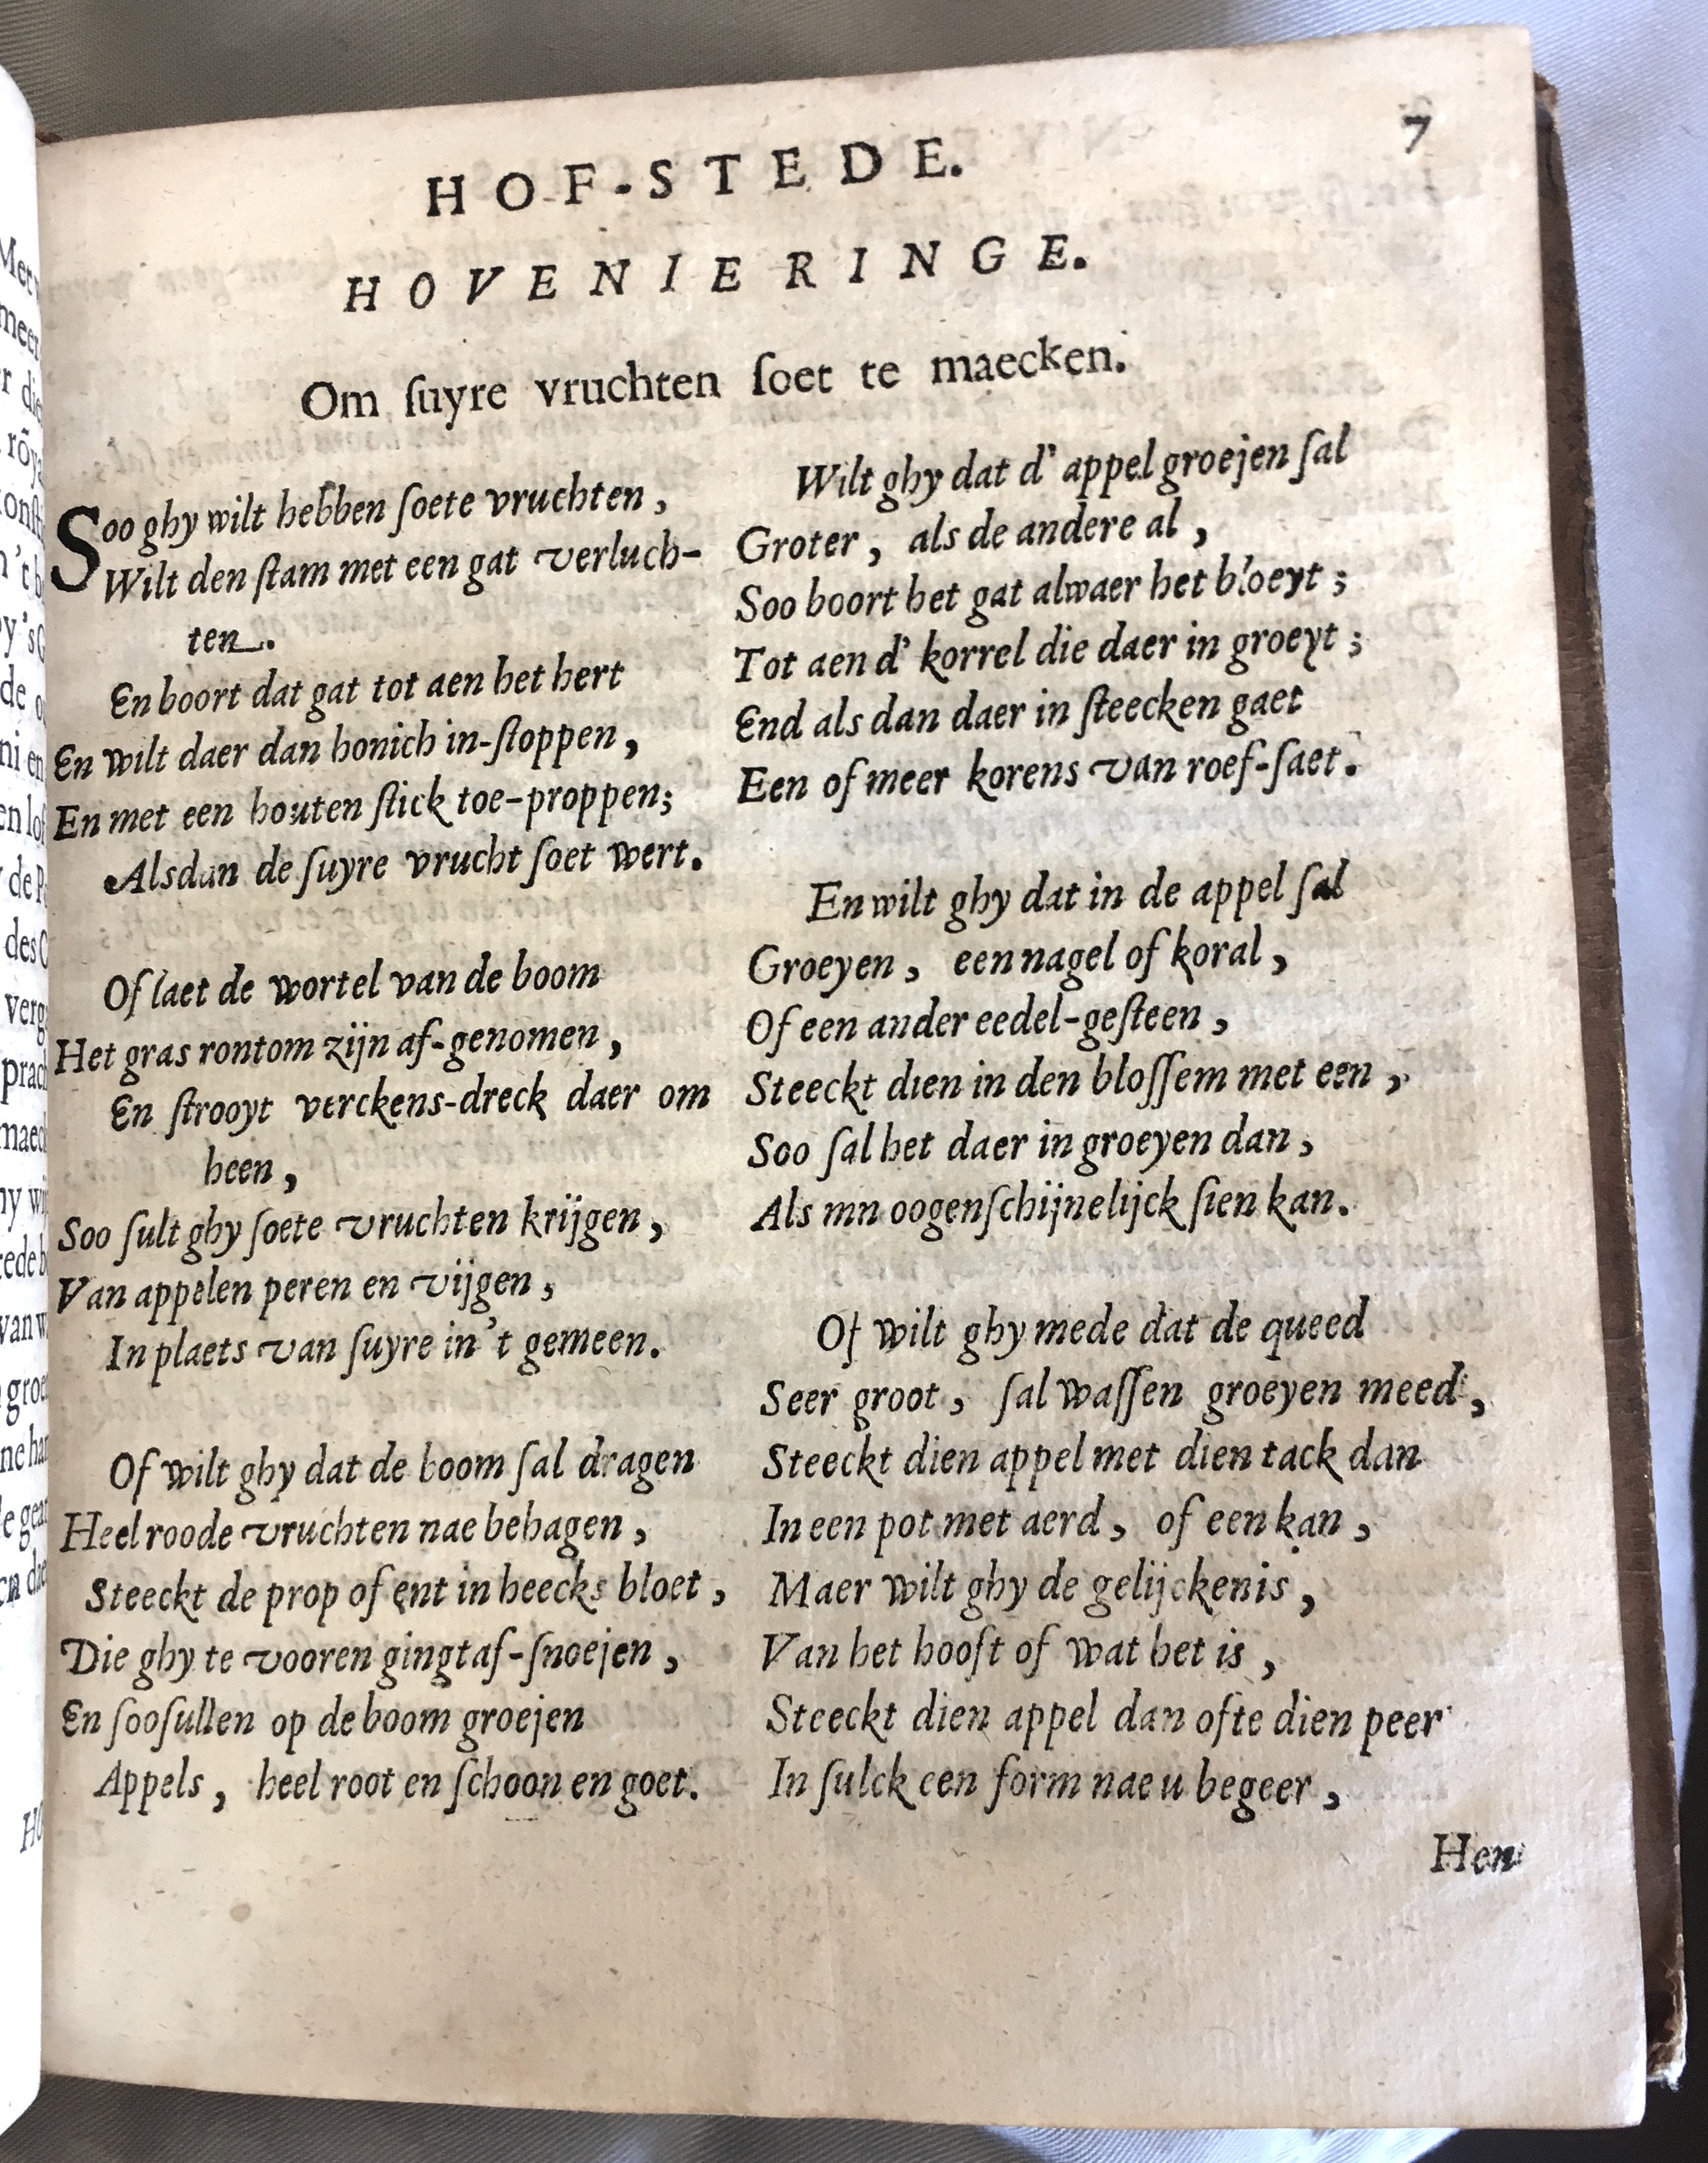 7
HOF-STEDE.
HOVENIERINGE.
Om ſuyre vruchten ſoet te maecken.
Soo ghy wilt hebben ſoete vruchten,
Wilt den ſtam met een gat verluch-
ten.
En boort dat gat tot aen het hert
En wilt daer dan honich in-ſtoppen,
En met een houten ſtick toe-proppen;
Alsdan de ſuyre vrucht ſoet wert.
Of laet de wortel van de boom
Het gras rontom zijn af-genomen,
En ſtrooyt verckens-dreck daer om
heen,
Soo ſult ghy ſoete vruchten krijgen,
Van appelen peren en vijgen,
In plaets van ſuyre in't gemeen.
Of wilt ghy dat de boom ſal dragen
Heel roode vruchten nae behagen,
Steeckt de prop of ent in heecks bloet,
Die ghy te vooren gingt af-ſnoejen,
En ſoo ſullen op de boom groejen
Appels, heel root en ſchoon en goet.
Wilt ghy dat d' appel groejen ſal
Groter, als de andere al,
Soo boort het gat alwaer het bloeyt;
Tot aen d' korrel die daer in groeyt;
End als dan daer in ſteecken gaet
Een of meer korens van roef-ſaet.
En wilt ghy dat in de appel ſal
Groeyen, een nagel of koral,
Of een ander eedel-geſteen,
Steeckt dien in den bloſſem met een,
Soo ſal het daer in groeyen dan,
Als mn oogenſchijnelijck ſien kan.
Of wilt ghy mede dat de queed
Seer groot, ſal waſſen groeyen meed,
Steeckt dien appel met dien tack dan
In een pot met aerd, of een kan,
Maer wilt ghy de gelijckenis,
Van het hooft of wat het is,
Steeckt dien appel dan ofte dien peer
In ſulck een form nae u begeer,
Hen